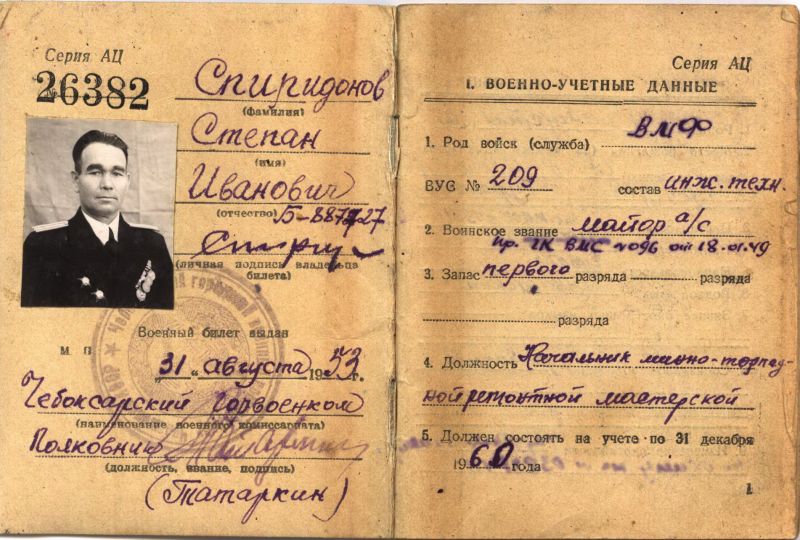 Серия АЦ
26382
Спиридонов
(фамилия)
Степан
(имя)
Иванович
(отчество) Б-887727
(личная подпись владельца
билета)
Военный билет выдан
М П
„31“ августа 1953 г.
Чебоксарский Горвоенком
(наименование военного комиссариата)
Полковник
(должность, звание, подпись)
(Татаркин)
Серия АЦ
I. ВОЕННО-УЧЕТНЫЕ ДАННЫЕ
1. Род войск (служба) ВМФ
ВУС № 209 состав инж. техн.
2. Воинское звание майор а/с
пр. ГК ВМС №096 от 18.01.49
3. Запас первого разряда разряда
разряда
4. Должность Начальник минно-торпед-
ной ремонтной мастерской
5. Должен состоять на учете по 31 декабря
1960 года
1